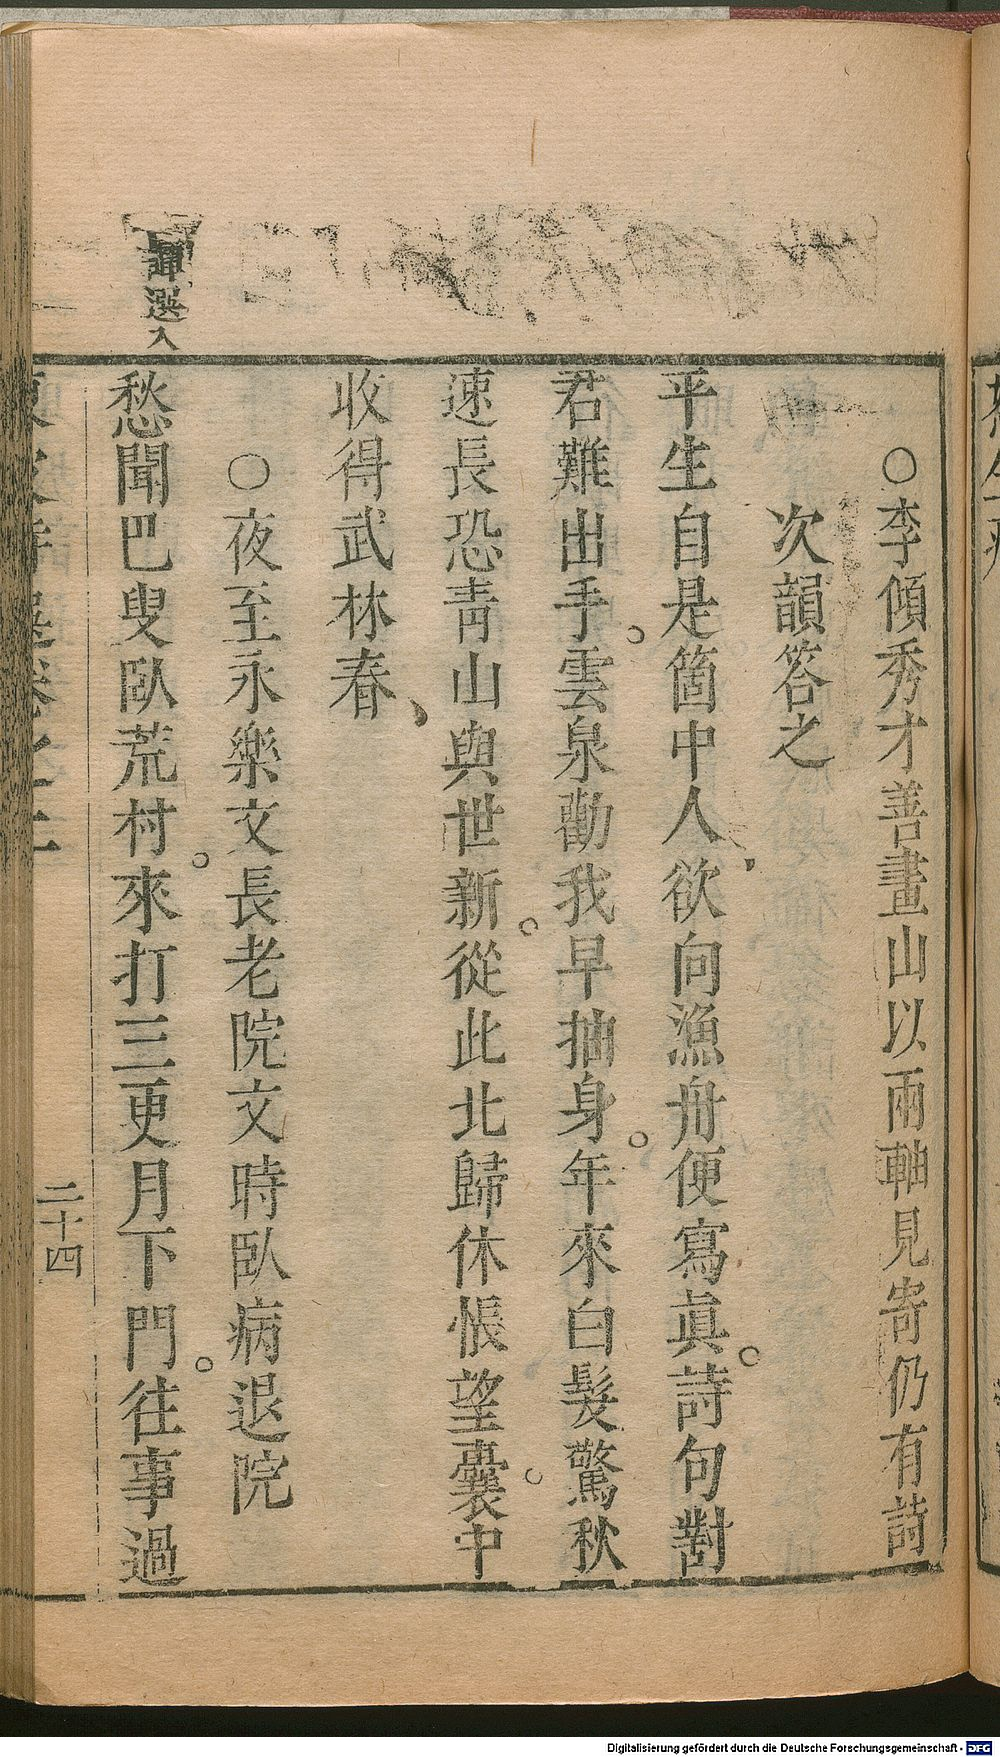 ○李傾秀才善畫山以兩軸見寄仍有詩
次韻答之
平生自是箇中人欲向漁舟便寫眞詩句對
君難出手雲泉勸我早抽身年來白髮驚秋
速長恐靑山與世新從此北歸休悵望囊中
收得武林春
○夜至永樂文長老院文時臥病退院
愁聞巴叟臥荒村來打三更月下門往事過
選入
二十四
Digitalisierung gefördert durch die Deutsche Forschungsgemeinschaft - DFG